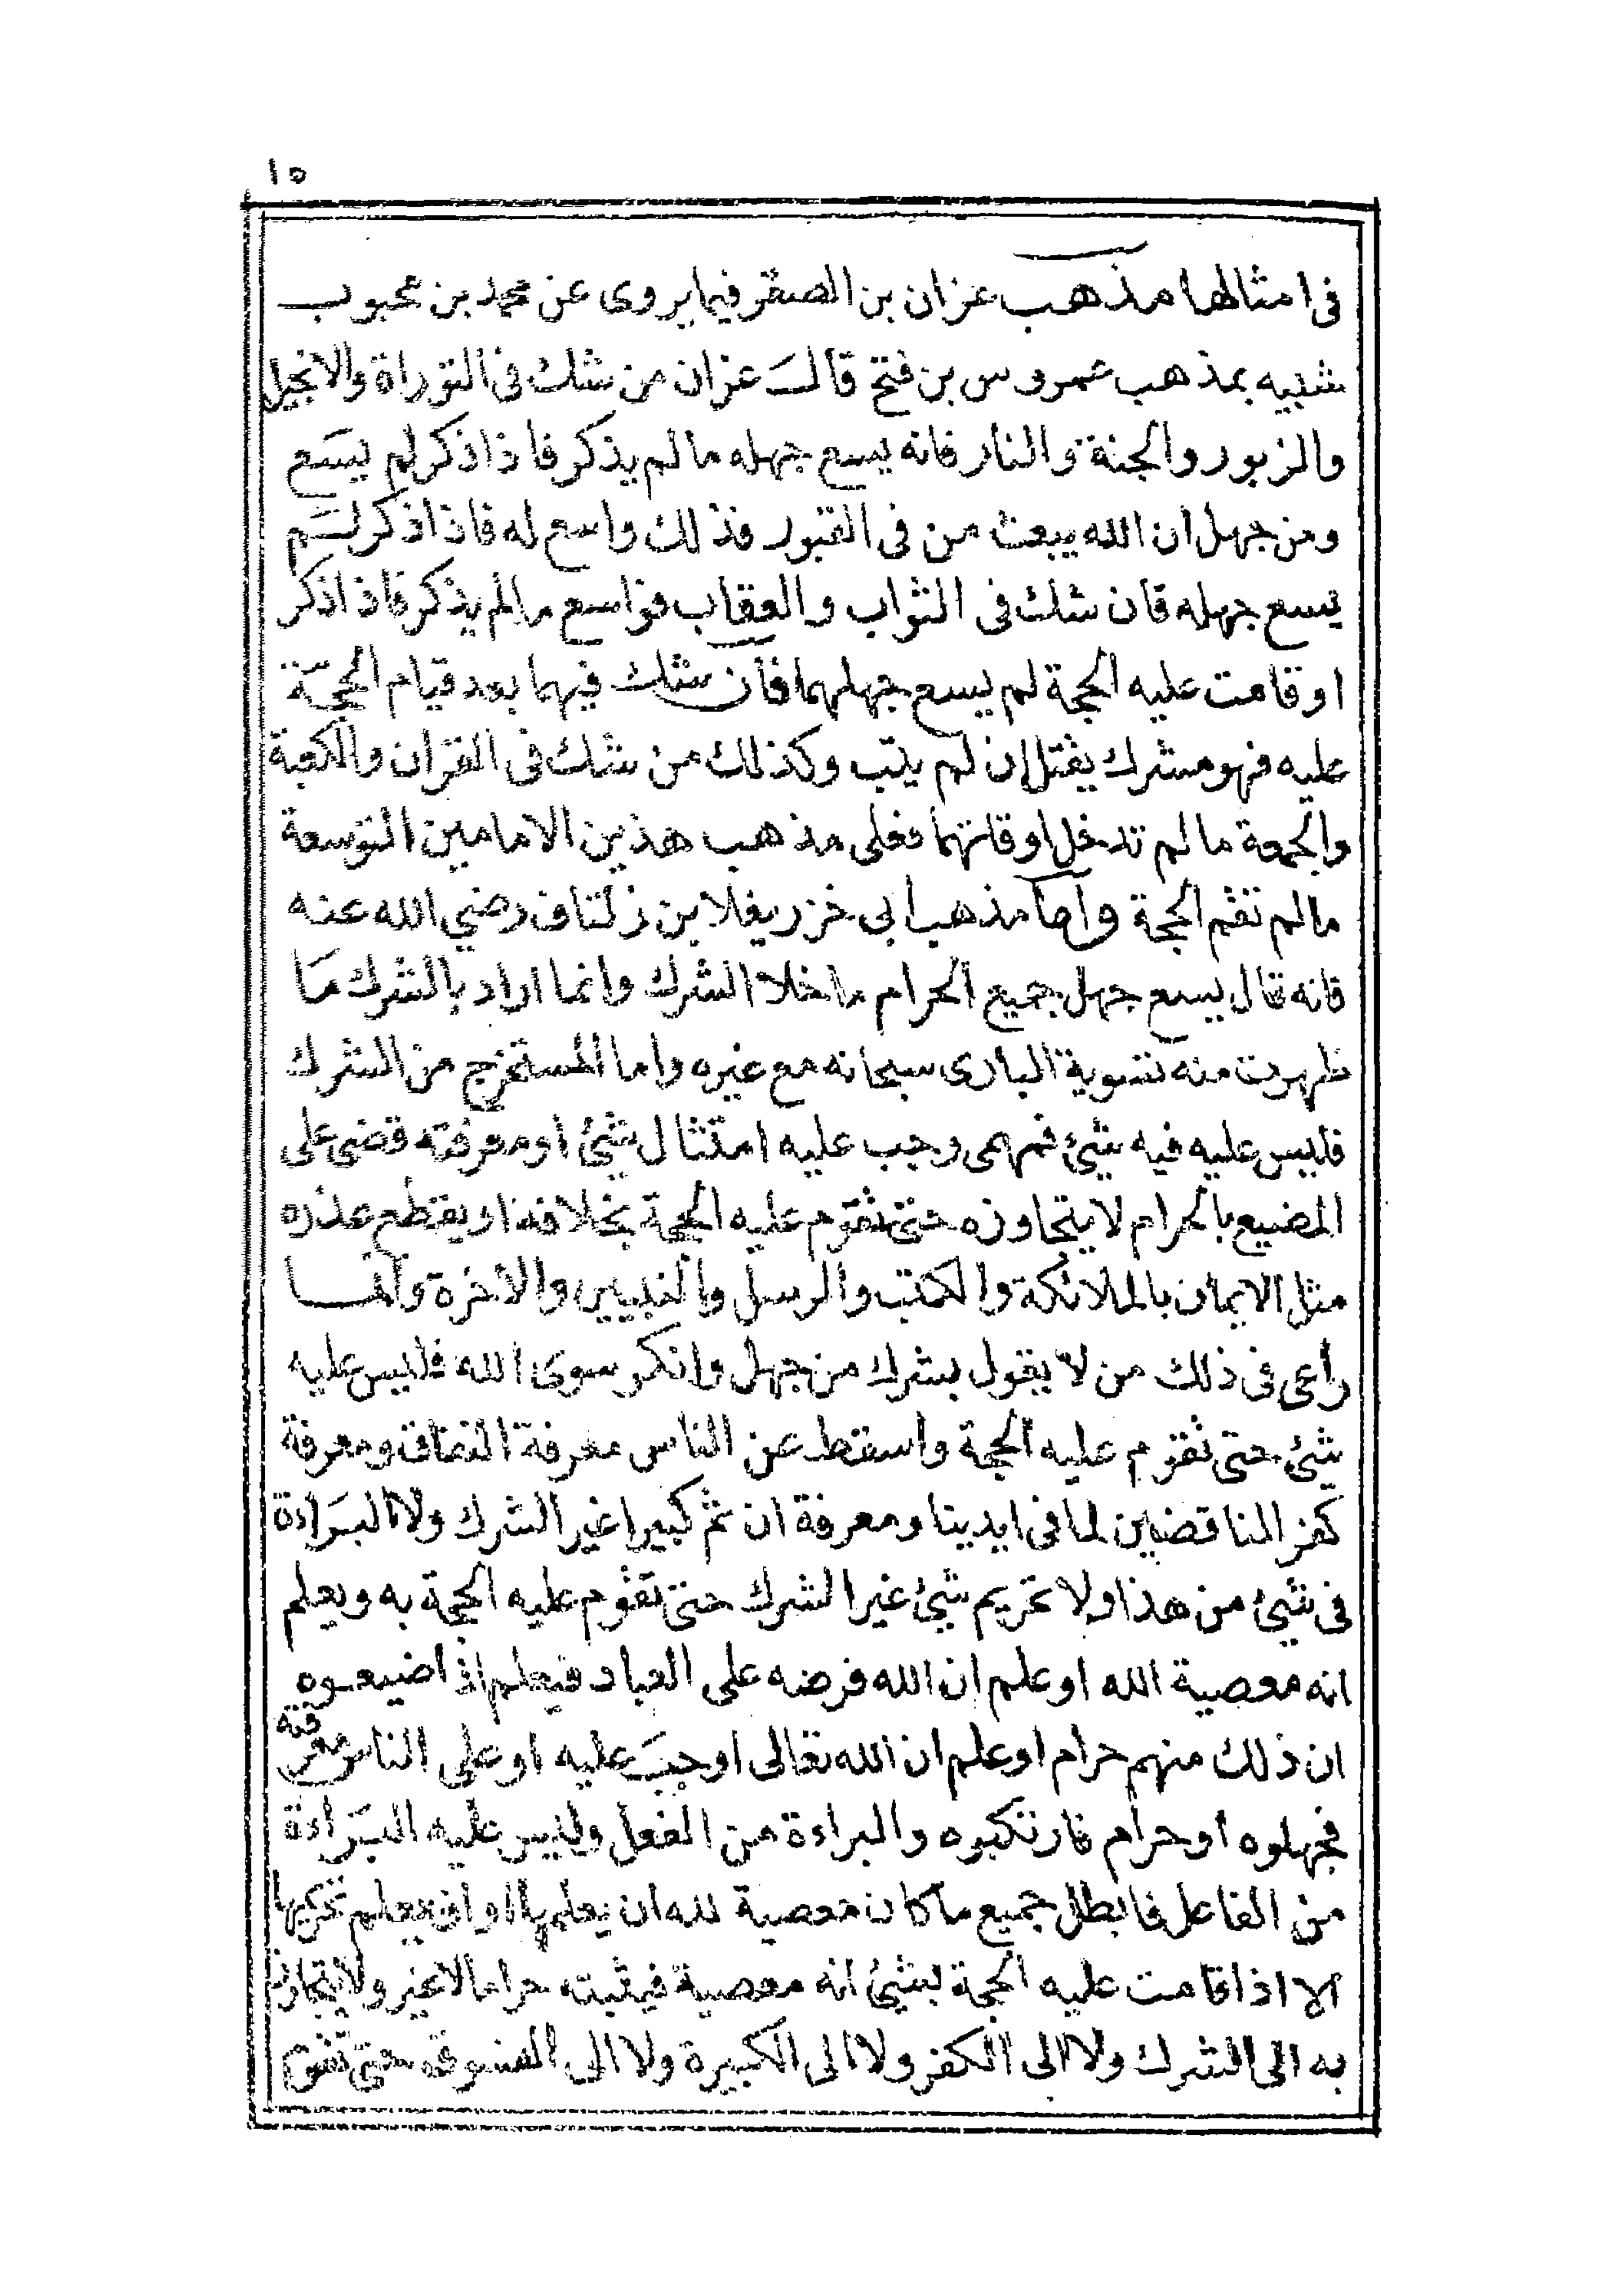 ١٥
فى امثالها مذهب عزان بن الصقر فيما يروى عن محمد بن محبوب
شبيه بمذهب عمروس بن فتح قالَ عزان من شك فى التوراة والانجيل
والزبور والجنة والنار فانه يسع جهله ما لم يذكر فاذا ذكر لم يسَع
ومن جهل ان الله يبعث من فى القبور فذلك واسع له فاذا ذكر لَم
يسع جهله فان شك فى الثواب والعقاب فواسع ما لم يذكر فاذا ذكر
او قامت عليه الحجة لم يسع جهلهما فان شك فيهما بعد قيام الحجّة
عليه فهو مشرك يقتل إن لم يتب وكذلك من شك فى القران والكعبة
والجمعة ما لم تدخل اوقاتهما فعلى مذهب هذين الامامين التوسعة
ما لم تقم الحجة وامَا مذهب ابى خزر يغلا بن زلتاف رضي الله عنه
فانه قال يسع جهل جميع الحرام ما خلا الشرك وانما اراد بالشرك مَا
ظهرت منه تسوية البارى سبحانه مع غيره واما المستخرج من الشرك
فليس عليه فيه شئ فمهمى وجب عليه امتثال شئ او معرفته قضى على
المضيع بالحرام لا يتجاوزه حتى تقوم عليه الحجة بخلافه او يقطع عذره
مثل الايمان بالملائكة والكتب والرسل والنبيين والأخرة وانمـا
راعى فى ذلك من لا يقول بشرك من جهل وانكر سوى الله فليس عليه
شئ حتى تقوم عليه الحجة واسقط عن الناس معرفة النفاق ومعرفة
كفر المناقضين لما فى ايدينا ومعرفة ان ثم كبيرا غير الشرك ولا البَراءة
فى شئ من هذا ولا تحريم شئ غير الشرك حتى تقوم عليه الحجة به ويعلم
انه معصية الله او علم ان الله فرضه على العباد فيعلم اذا ضيعوه
ان ذلك منهم حرام او علم ان الله تعالى اوجبَ عليه او على الناس معرفته
فجهلوه او حرام فارتكبوه والبراءة من الفعل وليس عليه البَراءة
من الفاعل فابطل جميع ما كان معصية لله ان يعلمها او ان يعلم تحريمها
الا اذا قامت عليه الحجة بشئ انه معصية فيثبته حراما لا غير ولا يتجاوز
به الى الشرك ولا الى الكفر ولا الى الكبيرة ولا الى الفسوق حتى